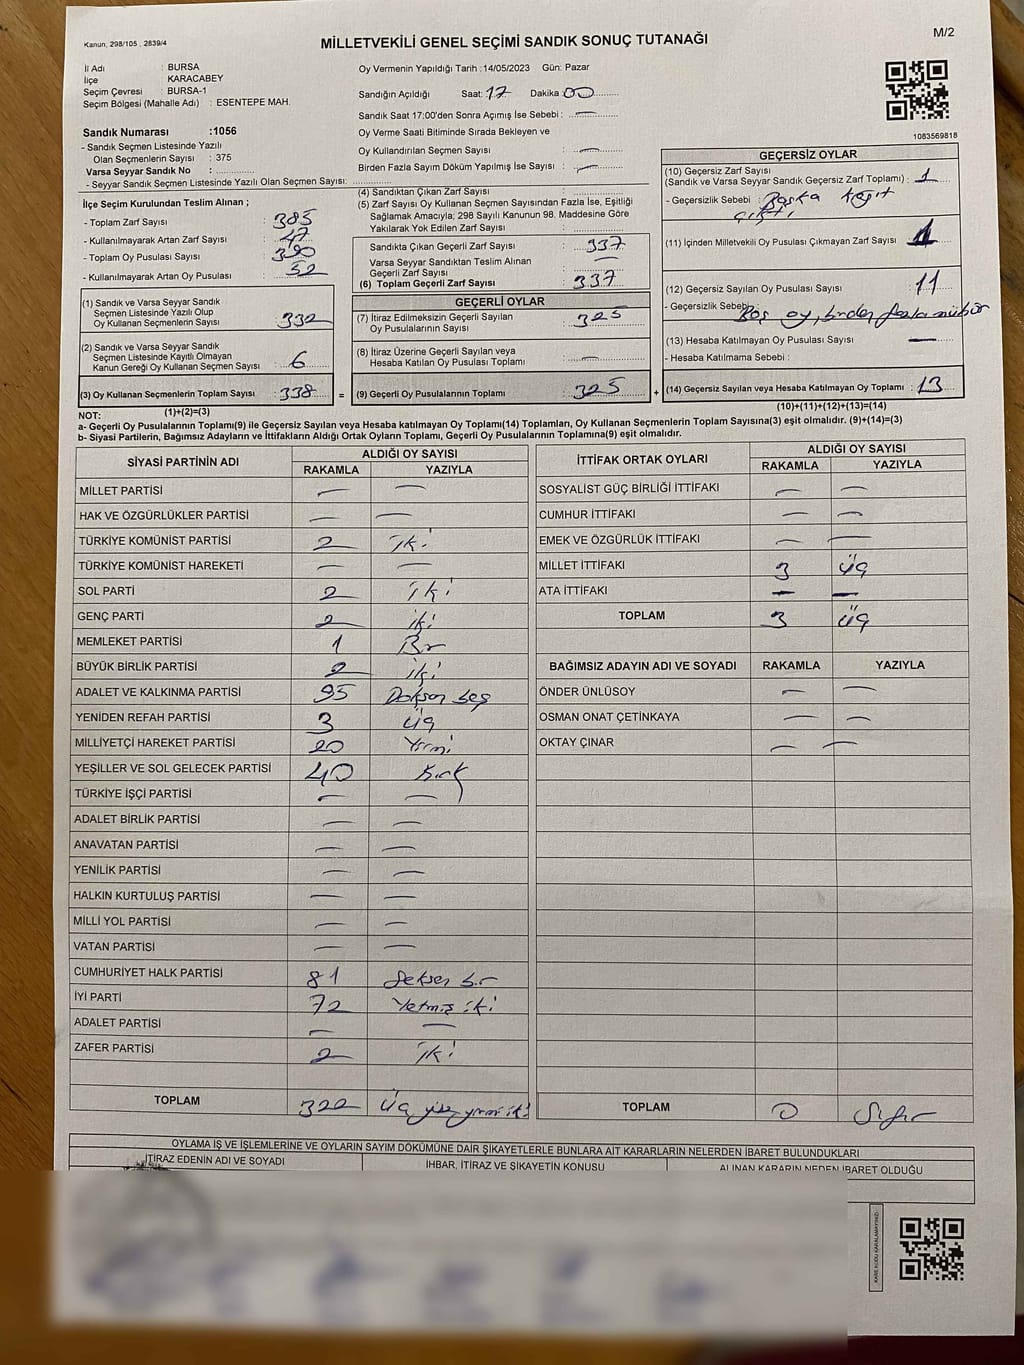 Kanun, 298/105 , 2839/4
MİLLETVEKİLİ GENEL SEÇİMİ SANDIK SONUÇ TUTANAĞI
M/2
İl Adı : BURSA
İlçe : KARACABEY
Seçim Çevresi : BURSA-1
Seçim Bölgesi (Mahalle Adı) : ESENTEPE MAH.
Oy Vermenin Yapıldığı Tarih :14/05/2023 Gün: Pazar
Sandığın Açıldığı Saat: 17 Dakika: 00
Sandık Saat 17:00'den Sonra Açımış İse Sebebi : —
Oy Verme Saati Bitiminde Sırada Bekleyen ve
Oy Kullandırılan Seçmen Sayısı : —
Birden Fazla Sayım Döküm Yapılmış İse Sayısı : —
1083569818
Sandık Numarası :1056
- Sandık Seçmen Listesinde Yazılı
Olan Seçmenlerin Sayısı : 375
Varsa Seyyar Sandık No :
- Seyyar Sandık Seçmen Listesinde Yazılı Olan Seçmen Sayısı:
İlçe Seçim Kurulundan Teslim Alınan ;
- Toplam Zarf Sayısı : 385
- Kullanılmayarak Artan Zarf Sayısı : 47
- Toplam Oy Pusulası Sayısı : 390
- Kullanılmayarak Artan Oy Pusulası : 52
(1) Sandık ve Varsa Seyyar Sandık
Seçmen Listesinde Yazılı Olup
Oy Kullanan Seçmenlerin Sayısı : 332
(2) Sandık ve Varsa Seyyar Sandık
Seçmen Listesinde Kayıtlı Olmayan
Kanun Gereği Oy Kullanan Seçmen Sayısı : 6
(3) Oy Kullanan Seçmenlerin Toplam Sayısı : 338 =
(1)+(2)=(3)
(4) Sandıktan Çıkan Zarf Sayısı :
(5) Zarf Sayısı Oy Kullanan Seçmen Sayısından Fazla İse, Eşitliği
Sağlamak Amacıyla; 298 Sayılı Kanunun 98. Maddesine Göre
Yakılarak Yok Edilen Zarf Sayısı :
Sandıkta Çıkan Geçerli Zarf Sayısı : 337
Varsa Seyyar Sandıktan Teslim Alınan
Geçerli Zarf Sayısı : —
(6) Toplam Geçerli Zarf Sayısı : 337
GEÇERLİ OYLAR
(7) İtiraz Edilmeksizin Geçerli Sayılan
Oy Pusulalarının Sayısı : 325
(8) İtiraz Üzerine Geçerli Sayılan veya
Hesaba Katılan Oy Pusulası Toplamı : —
(9) Geçerli Oy Pusulalarının Toplamı : 325 +
GEÇERSİZ OYLAR
(10) Geçersiz Zarf Sayısı
(Sandık ve Varsa Seyyar Sandık Geçersiz Zarf Toplamı) : 1
- Geçersizlik Sebebi : Başka kağıt
çıktı
(11) İçinden Milletvekili Oy Pusulası Çıkmayan Zarf Sayısı : 1
(12) Geçersiz Sayılan Oy Pusulası Sayısı : 11
- Geçersizlik Sebebi: Boş oy, birden fazla mühür
(13) Hesaba Katılmayan Oy Pusulası Sayısı : —
- Hesaba Katılmama Sebebi :
(14) Geçersiz Sayılan veya Hesaba Katılmayan Oy Toplamı : 13
(10)+(11)+(12)+(13)=(14)
NOT:
a- Geçerli Oy Pusulalarının Toplamı(9) ile Geçersiz Sayılan veya Hesaba katılmayan Oy Toplamı(14) Toplamları, Oy Kullanan Seçmenlerin Toplam Sayısına(3) eşit olmalıdır. (9)+(14)=(3)
b- Siyasi Partilerin, Bağımsız Adayların ve İttifakların Aldığı Ortak Oyların Toplamı, Geçerli Oy Pusulalarının Toplamına(9) eşit olmalıdır.
SİYASİ PARTİNİN ADI ALDIĞI OY SAYISI
RAKAMLA YAZIYLA
MİLLET PARTİSİ — —
HAK VE ÖZGÜRLÜKLER PARTİSİ — —
TÜRKİYE KOMÜNİST PARTİSİ 2 iki
TÜRKİYE KOMÜNİST HAREKETİ — —
SOL PARTİ 2 iki
GENÇ PARTİ 2 iki
MEMLEKET PARTİSİ 1 Bir
BÜYÜK BİRLİK PARTİSİ 2 iki
ADALET VE KALKINMA PARTİSİ 95 Doksan beş
YENİDEN REFAH PARTİSİ 3 üç
MİLLİYETÇİ HAREKET PARTİSİ 20 Yirmi
YEŞİLLER VE SOL GELECEK PARTİSİ 40 Kırk
TÜRKİYE İŞÇİ PARTİSİ — —
ADALET BİRLİK PARTİSİ — —
ANAVATAN PARTİSİ — —
YENİLİK PARTİSİ — —
HALKIN KURTULUŞ PARTİSİ — —
MİLLİ YOL PARTİSİ — —
VATAN PARTİSİ — —
CUMHURİYET HALK PARTİSİ 81 Seksen bir
İYİ PARTİ 72 Yetmiş iki
ADALET PARTİSİ — —
ZAFER PARTİSİ 2 iki
TOPLAM 322 Üç yüz yirmi iki
İTTİFAK ORTAK OYLARI ALDIĞI OY SAYISI
RAKAMLA YAZIYLA
SOSYALİST GÜÇ BİRLİĞİ İTTİFAKI — —
CUMHUR İTTİFAKI — —
EMEK VE ÖZGÜRLÜK İTTİFAKI — —
MİLLET İTTİFAKI 3 üç
ATA İTTİFAKI — —
TOPLAM 3 üç
BAĞIMSIZ ADAYIN ADI VE SOYADI RAKAMLA YAZIYLA
ÖNDER ÜNLÜSOY — —
OSMAN ONAT ÇETİNKAYA — —
OKTAY ÇINAR — —
TOPLAM 0 Sıfır
OYLAMA İŞ VE İŞLEMLERİNE VE OYLARIN SAYIM DÖKÜMÜNE DAİR ŞİKAYETLERLE BUNLARA AİT KARARLARIN NELERDEN İBARET BULUNDUKLARI
İTİRAZ EDENİN ADI VE SOYADI İHBAR, İTİRAZ VE ŞİKAYETİN KONUSU ALINAN KARARIN NEDEN İBARET OLDUĞU
KARE KODU KARALAMAYINIZ